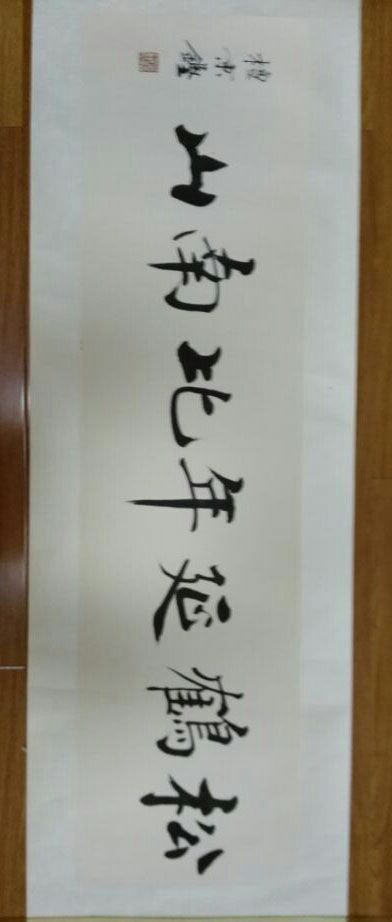 松鶴延年比南山